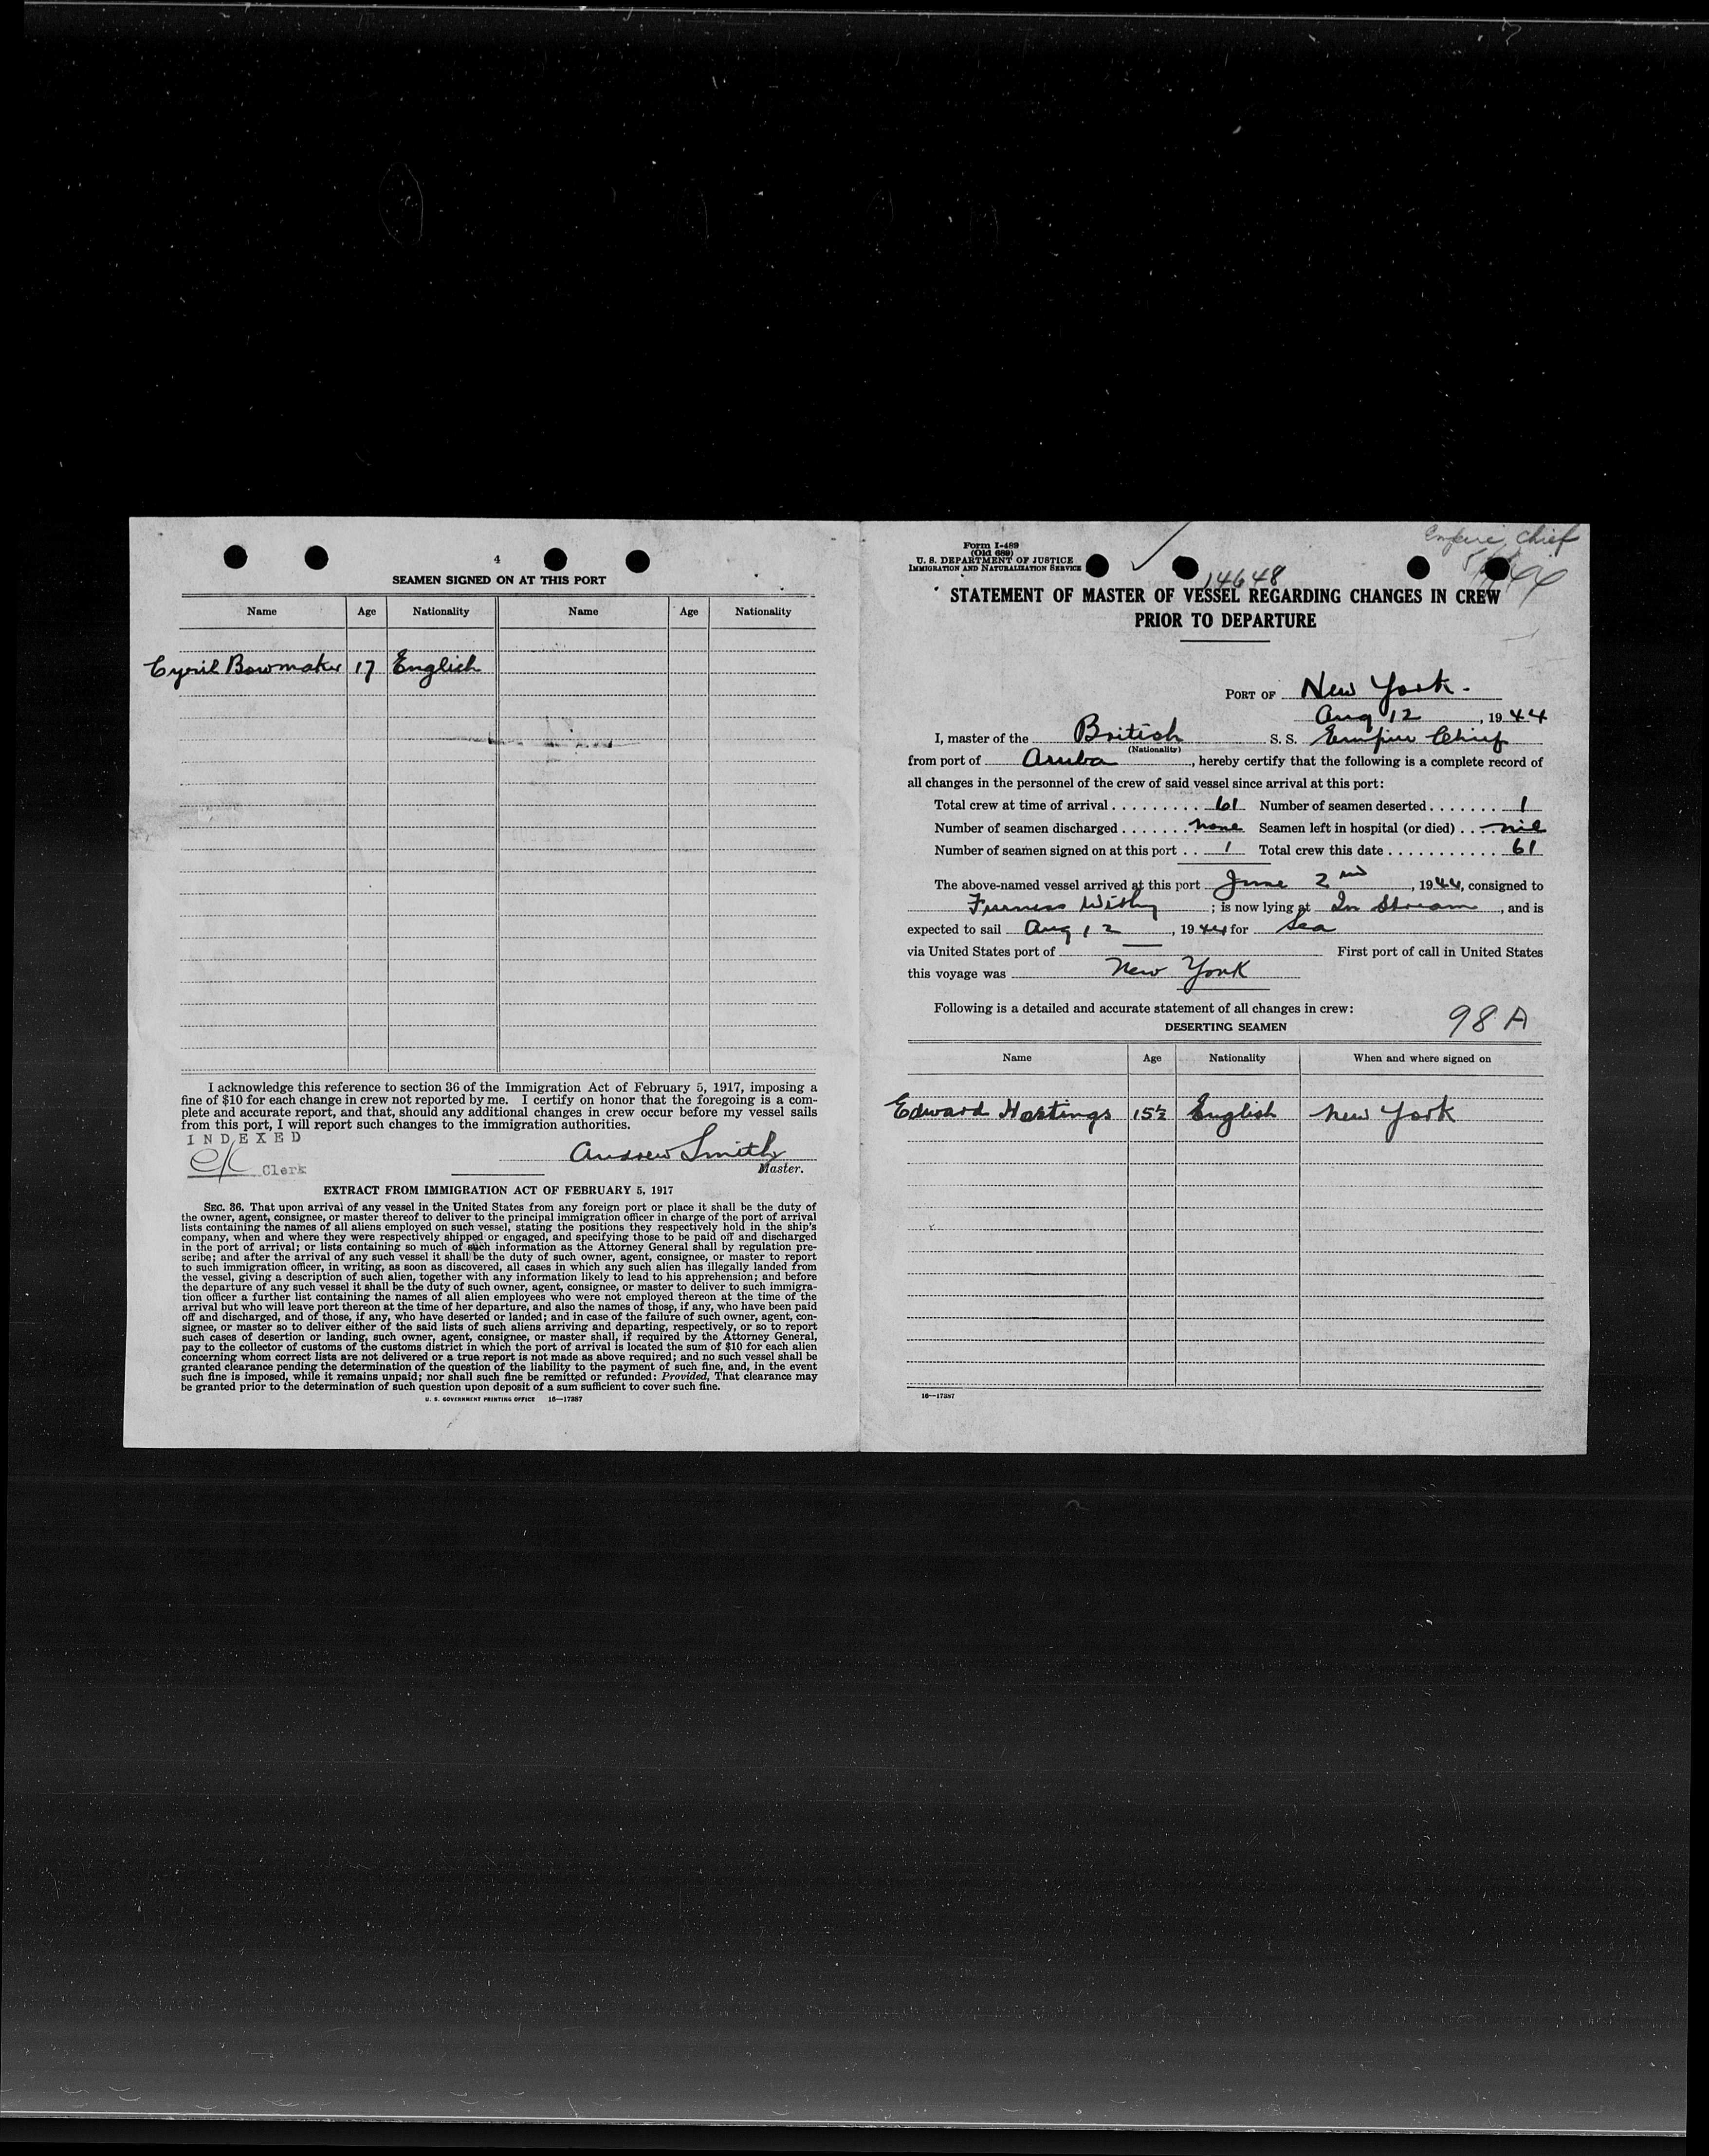 4
SEAMEN SIGNED ON AT THIS PORT
Name Age Nationality Name Age Nationality
Cyril Bowmaker 17 English
I acknowledge this reference to section 36 of the Immigration Act of February 5, 1917, imposing a
fine of $10 for each change in crew not reported by me. I certify on honor that the foregoing is a com-
plete and accurate report, and that, should any additional changes in crew occur before my vessel sails
from this port, I will report such changes to the immigration authorities.
INDEXED
Clerk
Andrew Smith
Master.
EXTRACT FROM IMMIGRATION ACT OF FEBRUARY 5, 1917
SEC. 36. That upon arrival of any vessel in the United States from any foreign port or place it shall be the duty of
the owner, agent, consignee, or master thereof to deliver to the principal immigration officer in charge of the port of arrival
lists containing the names of all aliens employed on such vessel, stating the positions they respectively hold in the ship's
company, when and where they were respectively shipped or engaged, and specifying those to be paid off and discharged
in the port of arrival; or lists containing so much of such information as the Attorney General shall by regulation pre-
scribe; and after the arrival of any such vessel it shall be the duty of such owner, agent, consignee, or master to report
to such immigration officer, in writing, as soon as discovered, all cases in which any such alien has illegally landed from
the vessel, giving a description of such alien, together with any information likely to lead to his apprehension; and before
the departure of any such vessel it shall be the duty of such owner, agent, consignee, or master to deliver to such immigra-
tion officer a further list containing the names of all alien employees who were not employed thereon at the time of the
arrival but who will leave port thereon at the time of her departure, and also the names of those, if any, who have been paid
off and discharged, and of those, if any, who have deserted or landed; and in case of the failure of such owner, agent, con-
signee, or master so to deliver either of the said lists of such aliens arriving and departing, respectively, or so to report
such cases of desertion or landing, such owner, agent, consignee, or master shall, if required by the Attorney General,
pay to the collector of customs of the customs district in which the port of arrival is located the sum of $10 for each alien
concerning whom correct lists are not delivered or a true report is not made as above required; and no such vessel shall be
granted clearance pending the determination of the question of the liability to the payment of such fine, and, in the event
such fine is imposed, while it remains unpaid; nor shall such fine be remitted or refunded: Provided, That clearance may
be granted prior to the determination of such question upon deposit of a sum sufficient to cover such fine.
U. S. GOVERNMENT PRINTING OFFICE 16—17387
Empire Chief
Form I-489
(Old 689)
U. S. DEPARTMENT OF JUSTICE
IMMIGRATION AND NATURALIZATION SERVICE
14648
STATEMENT OF MASTER OF VESSEL REGARDING CHANGES IN CREW
PRIOR TO DEPARTURE
PORT OF New York.
Aug 12, 1944
I, master of the British S. S. Empire Chief
(Nationality)
from port of Aruba, hereby certify that the following is a complete record of
all changes in the personnel of the crew of said vessel since arrival at this port:
Total crew at time of arrival . . . . . . . . . . 61 Number of seamen deserted . . . . . . . 1
Number of seamen discharged . . . . . . . none Seamen left in hospital (or died) . . . nil
Number of seamen signed on at this port . . 1 Total crew this date . . . . . . . . . . . . 61
The above-named vessel arrived at this port June 2nd, 1944, consigned to
Furness Withy; is now lying at In Stream, and is
expected to sail Aug 12, 1944 for Sea
via United States port of — First port of call in United States
this voyage was New York
Following is a detailed and accurate statement of all changes in crew:
98 A
DESERTING SEAMEN
Name Age Nationality When and where signed on
Edward Hastings 15½ English New York
16—17387